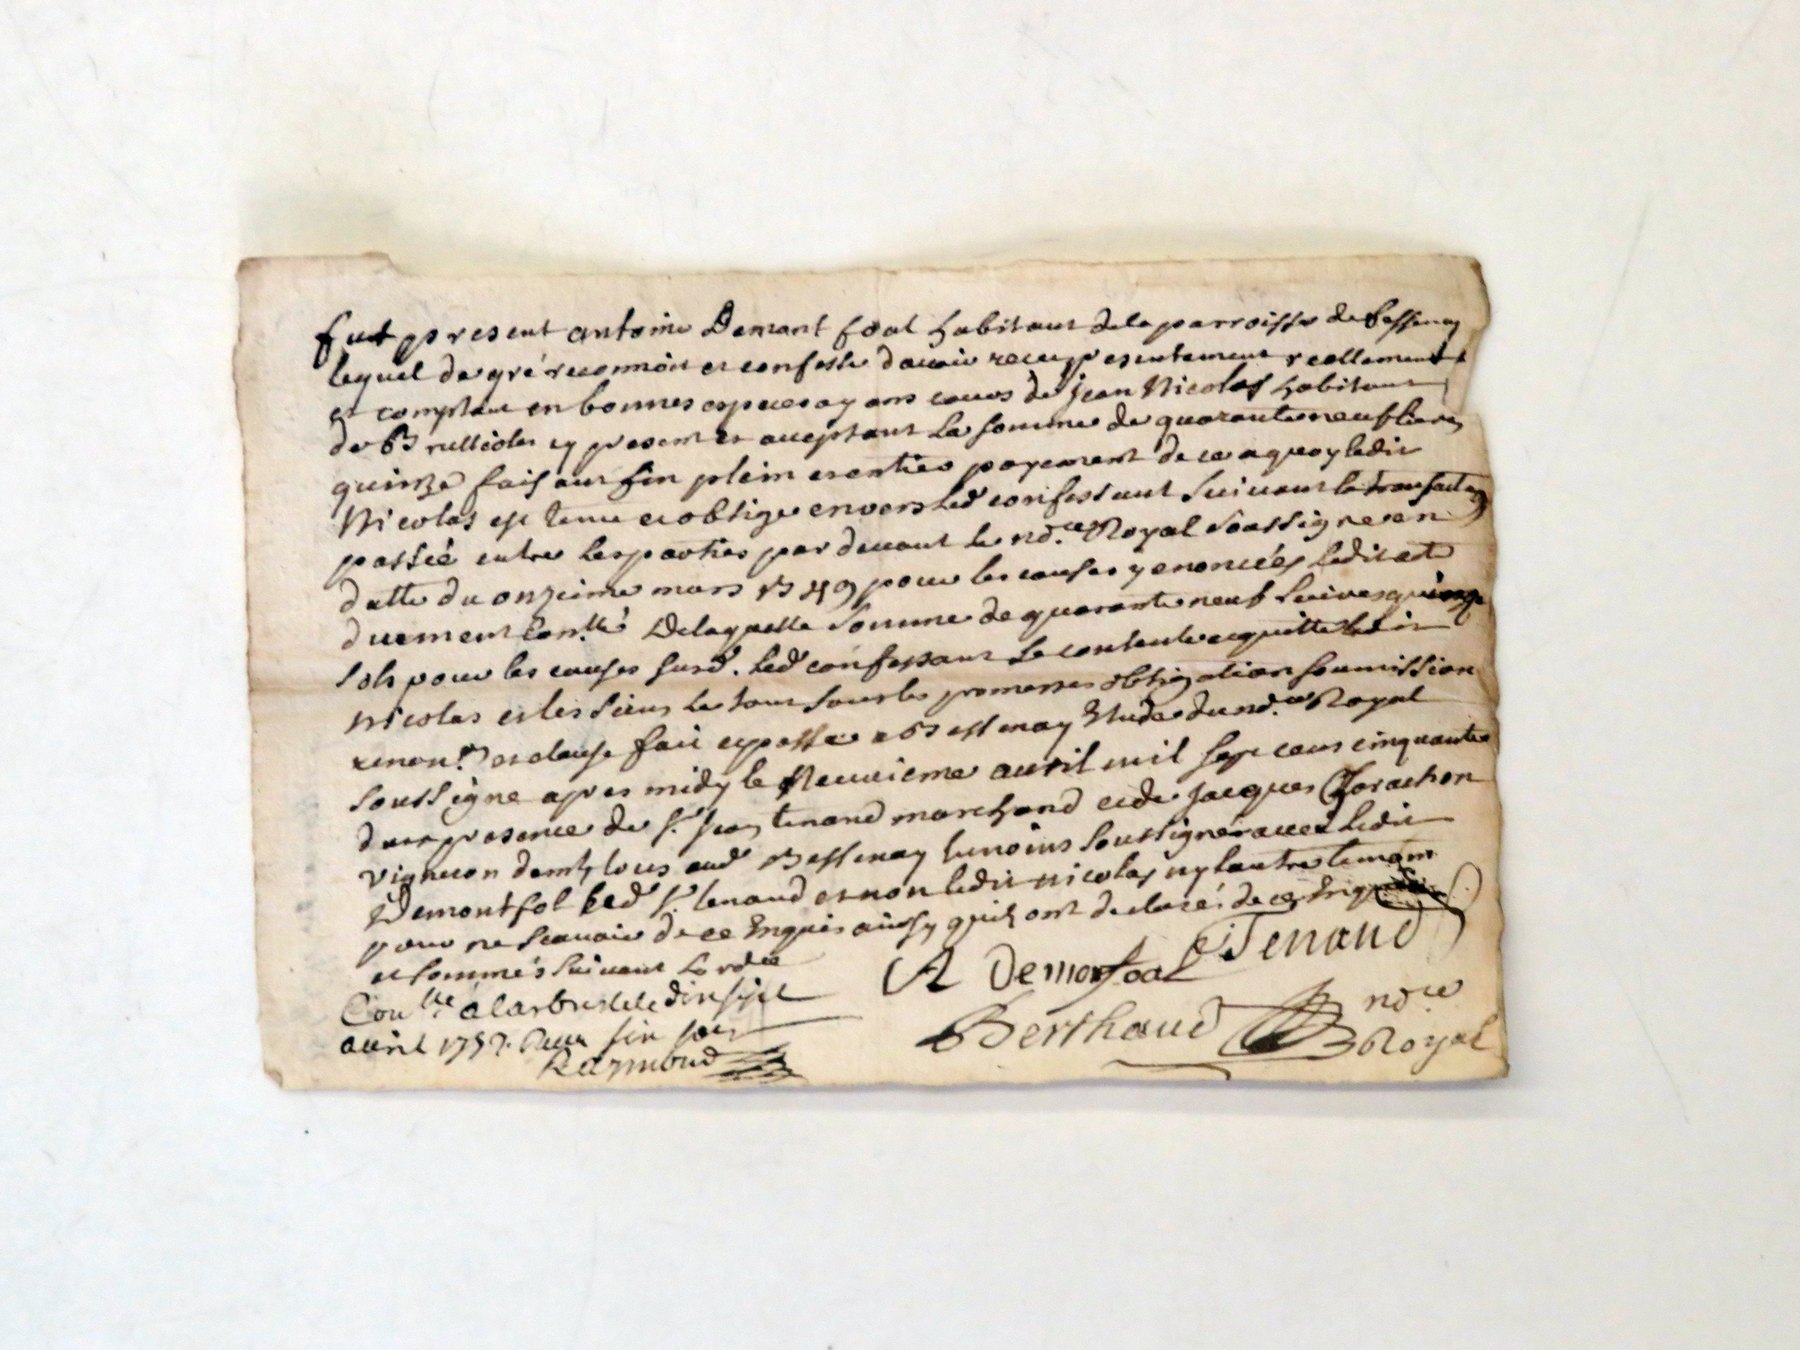 fut present antoine Demont foal habitant de la parroisse de Bessenay
lequel de gré reconnoit et confesse davoir receu presentement reellement
et comptant en bonnes especes ayans cours de Jean Nicolas habitant
de Brullioles cy present et acceptant La somme de quarante neuf livres
quinze faisant fin plein et entier payement de ce a quoy ledit
Nicolas est tenu et obligé envers led confessant suivant la transaction
passée entre les parties par devant le no.re Royal soussigne en
datte du onzieme mars pour les causes y enoncées ledit acte
duement Con.llé Delaquelle somme de quarante neuf livres quinze
sols pour les causes susd. led confessant se contente acquitte ledit
Nicolas et les siens le tout sous les promesses obligation soumission
renon.on et clause fait et passé a Bessenay Etude du no.re Royal
soussigne apres midy le Neuvieme avril mil sept cent cinquante
deux presence de S.r Jean tenand marchand et de Jacques
vigneron demt tous aud Bessenay temoins soussigné avec ledit
Demontfol led S.r tenand et non ledit Nicolas ny lautre temoin
pour ne scavoir de ce Enquis ainsy quils ont declaré. de ce Enquis
et sommés suivant Lord.ce
A Demonfoal Tenand
Con.llé a Larbresle le dixsept
avril 175
Raymond
Berthaud no.re
Royal